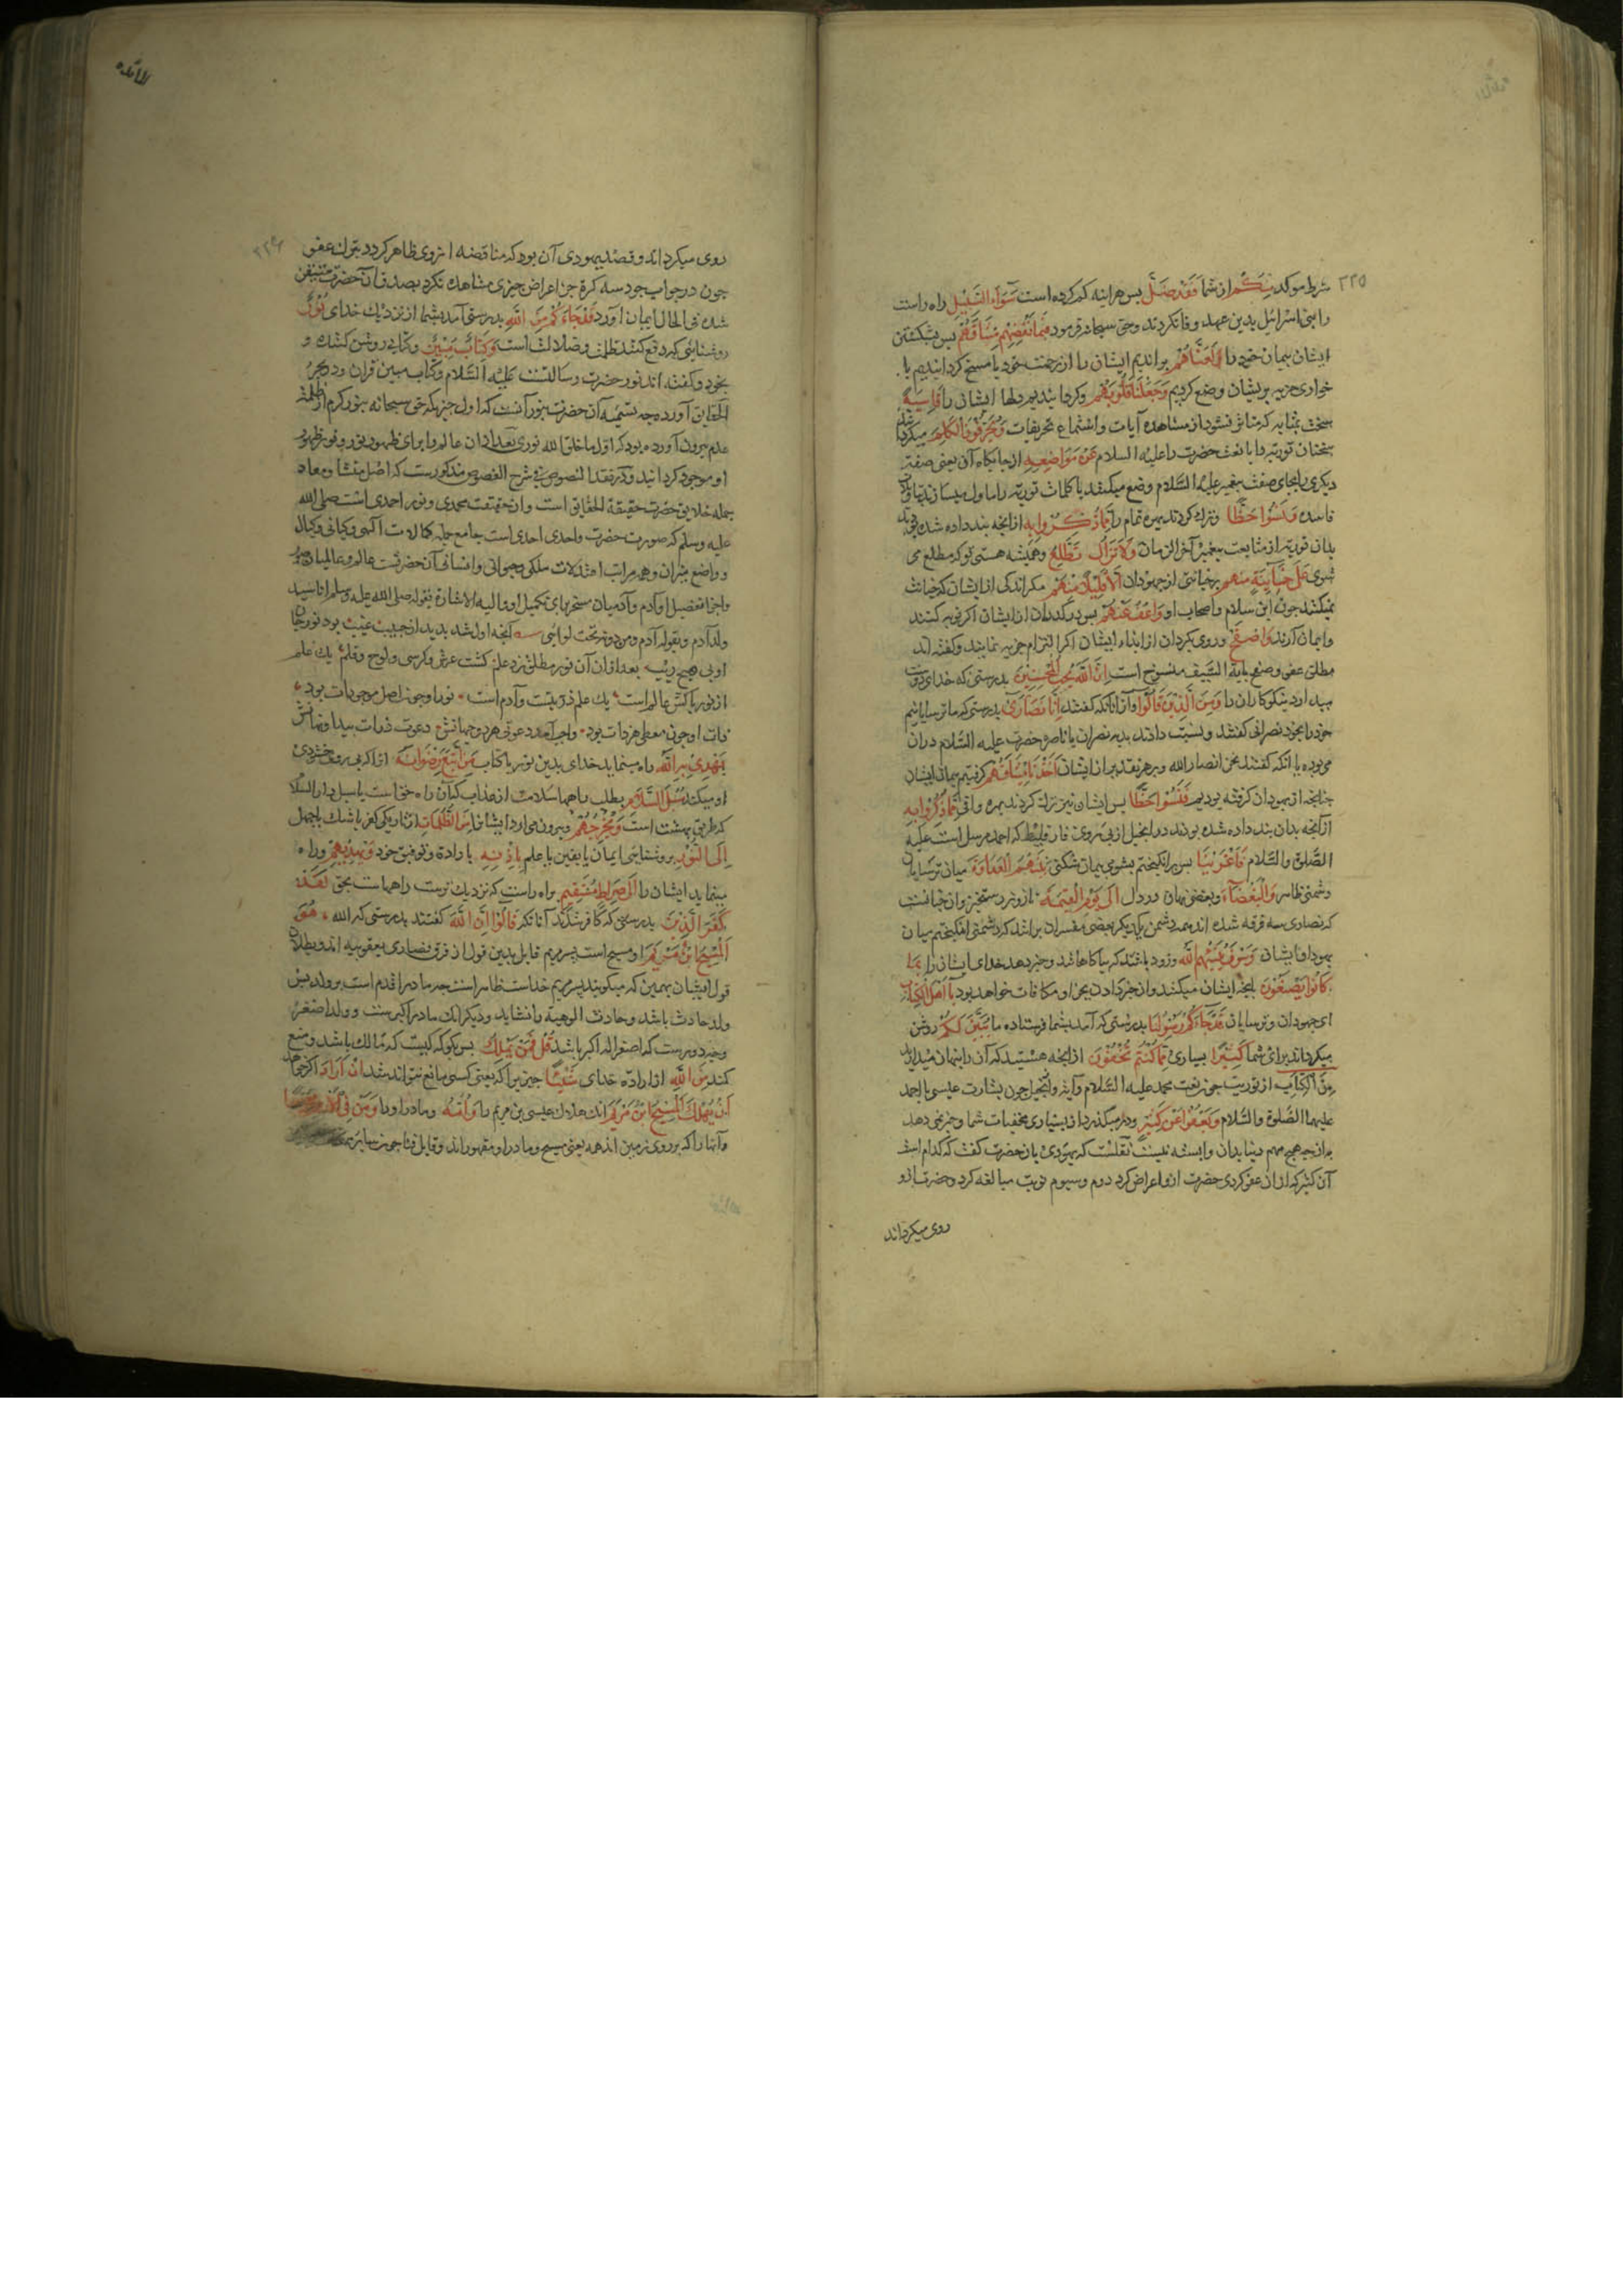 ٢٢٥
شرط موکد مِنکُم از شما فَقَد ضَلَّ پس هراینه کم کرده است سَوَآءَ السَّبِیل راه راست
را بنی اسرائیل بدین عهد وفا نکردند وحق سبحانه فرمود فَبِمَا نَقضِهِم مِّیثَاقَهُم پس بشکستن
ایشان پیمان خود را لَعَنَّاهُم براندیم ایشان را از رحمت خود یا مسخ کردانیدیم یا
خواری جزیه بریشان وضع کردیم وَجَعَلنَا قُلُوبَهُم وکردانیدیم دلها ایشان را قَاسِیَةً
سخت بمثابه که متاثر نشود از مشاهده آیات واستماع تحریفات یُحَرِّفُونَ الکَلِمَ میکردانند
سخنان توریة را یا نعت حضرت را علیه السلام عَن مَوَاضِعِهِ از جایکاه آن یعنی صفت
دیکری را بجای صفت پیغمبر علیه السلام وضع میکنند یا کلمات توریة را ماول میسازند بتاویل
فاسده وَنَسُوا حَظًّا وترک کردند بهره تمام را مِمَّا ذُکِّرُوا بِهِ از آنجه پند داده شده بودند
بدان توریة از متابعت پیغمبر آخر الزمان وَلَا تَزَالُ تَطَّلِعُ وهمیشه هستی تو که مطلع می
شوی عَلَى خَآئِنَةٍ مِّنهُم بر خیانتی از جهودان اِلَّا قَلِیلًا مِّنهُم مکر اندکی از ایشان که خیانت
نمیکنند جون ابن سلام واصحاب او فَاعفُ عَنهُم پس درکذران از ایشان اکر توبه کنند
وایمان آرند وَاصفَح وروی بکردان از ایذاء ایشان اکر التزام جزیه نمایند وکفته اند
مطلق عفو وصفح بآیة السیف منسوخ است اِنَّ اللّٰهَ یُحِبُّ المُحسِنِینَ بدرستی که خدای دوست
میدارد نیکوکاران را وَمِنَ الَّذِینَ قَالُوا واز آنانکه کفتند اِنَّا نَصَارَى بدرستی که ما ترسایانیم
خود را بخود نصرانی کفتند ونسبت دادند بدیه نصران یا ناصره حضرت علیه السلام دران
می بوده یا انکه کفتند نحن انصار الله وبر هر تقدیر از ایشان اَخَذنَا مِیثَاقَهُم کرفتیم پیمان ایشان
جنانجه از یهودان کرفته بودیم فَنَسُوا حَظًّا پس ایشان نیز ترک کردند بهره وافی مِمَّا ذُکِّرُوا بِهِ
از آنجه بدان پند داده شده بودند در انجیل از پی روی فارقلیط که احمد مرسل است علیه
الصلوة والسلام فَاَغرَینَا پس برانکیختیم بشومی پیمان شکنی بَینَهُمُ العَدَاوَةَ میان ترسایان
دشمنی ظاهر وَالبَغضَآءَ وبغضی نهان در دل اِلَى یَومِ القِیٰمَةِ تا روز رستخیز وان جنانست
که نصاری سه فرقه شده اند همه دشمن یکدیکر بعضی مفسران برانند که دشمنی افکندیم میان
یهود وایشان وَسَوفَ یُنَبِّئُهُمُ اللّٰهُ وزود باشد که بیاکاهاند وخبر دهد خدای ایشان را بِمَا
کَانُوا یَصنَعُونَ بانجه ایشان میکنند وان خبر دادن بجزا ومکافات خواهد بود یَا اَهلَ الکِتَابِ
ای جهودان وترسایان قَد جَآءَکُم رَسُولُنَا بدرستی که آمد بشما فرستاده ما یُبَیِّنُ لَکُم روشن
میکرداند برای شما کَثِیرًا بسیاری مِّمَّا کُنتُم تُخفُونَ از آنجه هستید که آن را پنهان میدارید
مِنَ الکِتَابِ از توریت جون نعت محمد علیه السلام وآیة رجم وانجیل جون بشارت عیسی باحمد
علیهما الصلوة والسلام وَیَعفُوا عَن کَثِیرٍ ودر میکذرد از بسیاری مخفیات شما وخبر نمی دهد
آن کثیر که از ان عفو کردی حضرت ازو اعراض کرد دوم وسیوم نوبت مبالغه کرد وحضرت ازو
روی میکرداند
٢٢٦
روی میکرداند وقصد یهودی آن بود که مناقضه از وی ظاهر کردد بترک عفو
جون در جواب خود سه کرة جز اعراض جیزی مشاهده نکرد بصدق آن حضرت متیقن
شده فی الحال ایمان آورد قَد جَاءَکُم مِنَ اللّٰهِ بدرستی آمد بشما از نزدیک خدای نُورٌ
روشنایی که دفع کند ظلمت وضلالت است وَکِتَابٌ مُبِینٌ وکتابی روشن کننده
بخود وکفته اند نور حضرت رسالتست علیه السلام وکتاب مبین قران ودر بحر
الحقایق آورده وجه تسمیه آن حضرت بنور آنست که اول جیزیکه حق سبحانه بنور کرم از ظلمت
عدم بیرون آورده بود که اول ما خلق الله نوری بعد از ان عالم را برای ظهور نور
او موجود کردانید ودر نقد النصوص فی شرح الفصوص مذکورست که اصل منشأ ومعاد
جمله خلایق حضرت حقیقة الحقایق است وان حقیقت محمدی ونور احمدی است صلی الله
علیه وسلم که صورت حضرت واحدی احدی است جامع جمله کمالات الهی وکیانی
وواضع میزان همه مراتب اعتدلات ملکی وحیوانی وانسانی آن حضرتست عالم وعالمیان
واجزا تفصیل او آدم وآدمیان مسخر برای تکمیل او والیه الاشارة بقوله صلی الله علیه وسلم انا سید
ولد آدم وبقوله آدم ومن دونه تحت لوائی آنجه اول شد پدید از جیب غیب بود نور
او بی هیچ ریب بعد از ان آن نور مطلق زد علم کشت عرش وکرسی ولوح وقلم یک علم
از نور پاکش عالم است یک علم ذریتست وآدم است نور او جون اصل موجودات بود
ذات او جون معطی هر ذات بود واجب آمد دعوت هر دو جهانش دعوت ذرات پیدا ونهانش
یَهدِی بِهِ اللّٰهُ راه مینماید خدای بدین نور یا کتاب مَنِ اتَّبَعَ رِضوَانَهُ انرا که پی روی خشنودی
او میکند سُبُلَ السَّلَامِ بطلب راهها سلامت از عذاب که آن راه حق است یا سبل دار السلام
که طریق بهشت است وَیُخرِجُهُم وبیرون می ارد ایشان را مِنَ الظُّلُمَاتِ از تاریکی کفر یا شک یا جهل
اِلَى النُّورِ بروشنایی ایمان یا یقین یا علم بِاِذنِهِ بارادة وتوفیق خود وَیَهدِیهِم وراه
مینماید ایشان را اِلَى صِرَاطٍ مُستَقِیمٍ براه راست که نزدیک ترست راههاست بحق لَقَد
کَفَرَ الَّذِینَ بدرستی که کافر شدند آنانکه قَالُوا اِنَّ اللّٰهَ کفتند بدرستی که الله هُوَ
المَسِیحُ ابنُ مَریَمَ او مسیح است پسر مریم قایل بدین قول از فرق نصاری یعقوبیه اند وبطلان
قول ایشان بهمین که میکویند پسر مریم خداست ظاهر است جه مادر اقدم است بر ولد پس
ولد حادث باشد وحادث الوهیة را نشاید ودیکر انک مادر اکبرست وولد اصغر
کند مِنَ اللّٰهِ از ارادة خدای شَیئًا جیزیرا که یعنی کسی مانع نتواند شد اِن اَرَادَ اکر خواهد
اَن یُهلِکَ المَسِیحَ ابنَ مَریَمَ انک هلاک عیسی بن مریم را وَاُمَّهُ ومادر او را وَمَن فِی الاَرضِ جَمِیعًا
وآنها را که بر روی زمین اند همه یعنی مسیح ومادر او مقهور اند وقابل فنا جون سایر